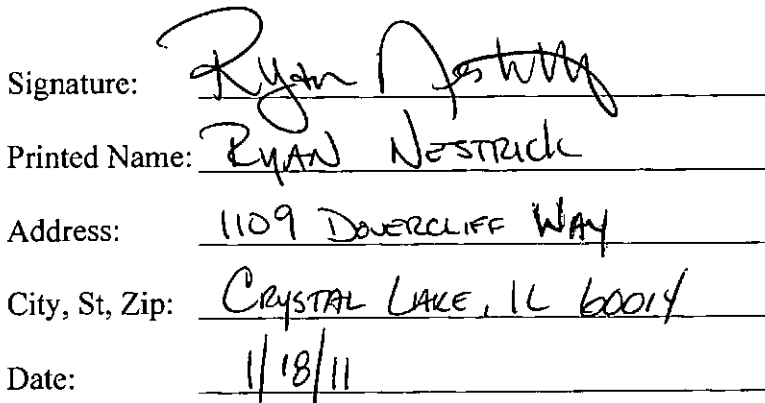 Signature: Ryan
Printed Name: RYAN NESTRICK
Address: 1109 DOVERCLIFF WAY
City, St, Zip: CRYSTAL LAKE, IL 60014
Date: 1/18/11